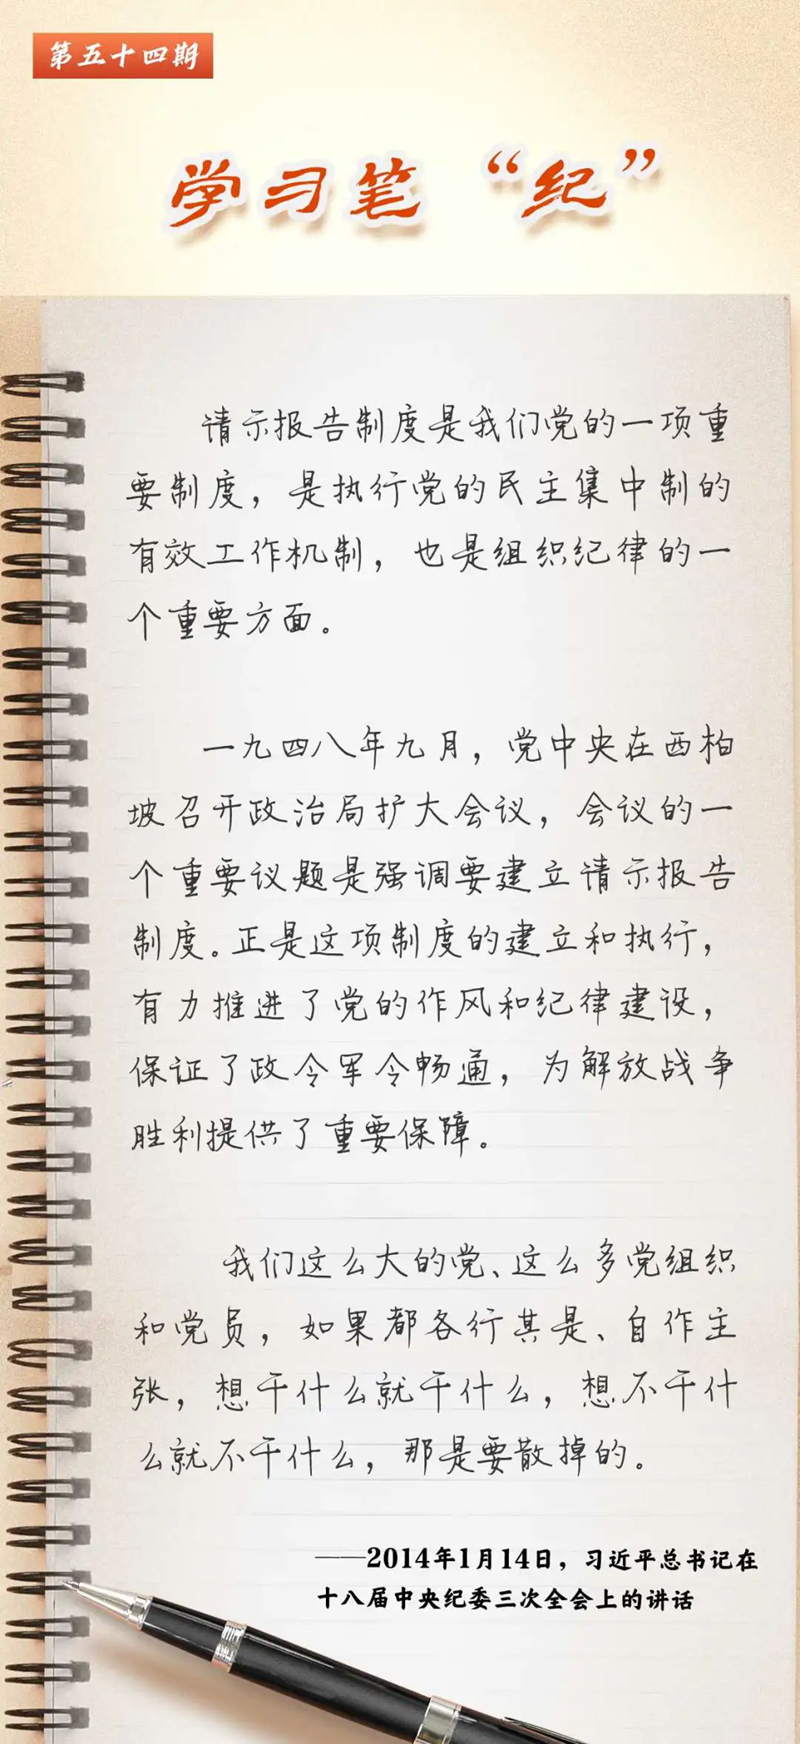 第五十四期
学习笔“纪”
请示报告制度是我们党的一项重
要制度，是执行党的民主集中制的
有效工作机制，也是组织纪律的一
个重要方面。
一九四八年九月，党中央在西柏
坡召开政治局扩大会议，会议的一
个重要议题是强调要建立请示报告
制度。正是这项制度的建立和执行，
有力推进了党的作风和纪律建设，
保证了政令军令畅通，为解放战争
胜利提供了重要保障。
我们这么大的党、这么多党组织
和党员，如果都各行其是、自作主
张，想干什么就干什么，想不干什
么就不干什么，那是要散掉的。
——2014年1月14日，习近平总书记在
十八届中央纪委三次全会上的讲话